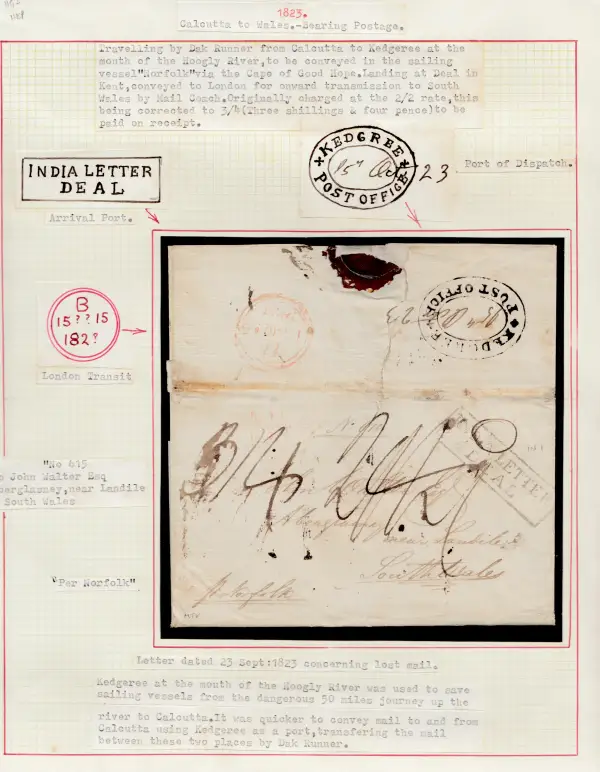 1823.
Calcutta to Wales.-Bearing Postage.
Travelling by Dak Runner from Calcutta to Kedgeree at the
mouth of the Hoogly River,to be conveyed in the sailing
vessel"Norfolk"via the Cape of Good Hope.Landing at Deal in
Kent,conveyed to London for onward transmission to South
Wales by Mail Coach.Originally charged at the 2/2 rate,this
being corrected to 3/4(Three shillings & four pence)to be
paid on receipt.
INDIA LETTER
DEAL
Arrival Port.
KEDGREE
POST OFFICE
23
Port of Dispatch.
B
15 ? ? 15
182?
London Transit
KEDGREE
POST OFFICE
LETTER
"No 615
John Walter Esq
near Landile
South Wales
"Per Norfolk"
near Landilo
South Wales
pr Norfolk
Letter dated 23 Sept:1823 concerning lost mail.
Kedgeree at the mouth of the Hoogly River was used to save
sailing vessels from the dangerous 50 miles journey up the
river to Calcutta.It was quicker to convey mail to and from
Calcutta using Kedgeree as a port,transfering the mail
between these two places by Dak Runner.